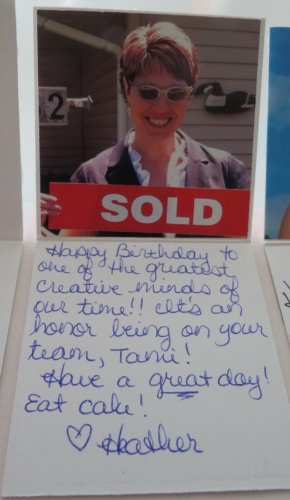 2
SOLD
Happy Birthday to
one of the greatest
creative minds of
our time!! It's an
honor being on your
team, Tami!
Have a great day!
Eat cake!
♡ Heather